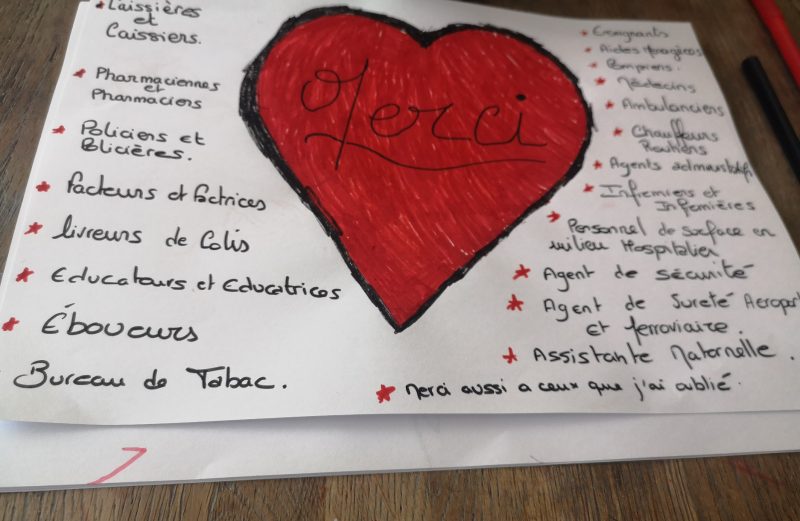 Caissières
et
Caissiers.
Pharmaciennes
et
Pharmaciens
Policiers et
Policières.
facteurs et factrices
livreurs de Colis
Educateurs et Educatrices
Éboueurs
Bureau de Tabac.
Merci
Enseignants
Aides ménagères
Pompiers.
Médecins
Ambulanciers
Chauffeurs
Routiers
Agents administratifs
Infirmiers et
Infirmières
Personnel de surface en
milieu Hospitalier
Agent de sécurité
Agent de Sureté Aeroport
et ferroviaire.
Assistante Maternelle.
Merci aussi a ceux que j'ai oublié.